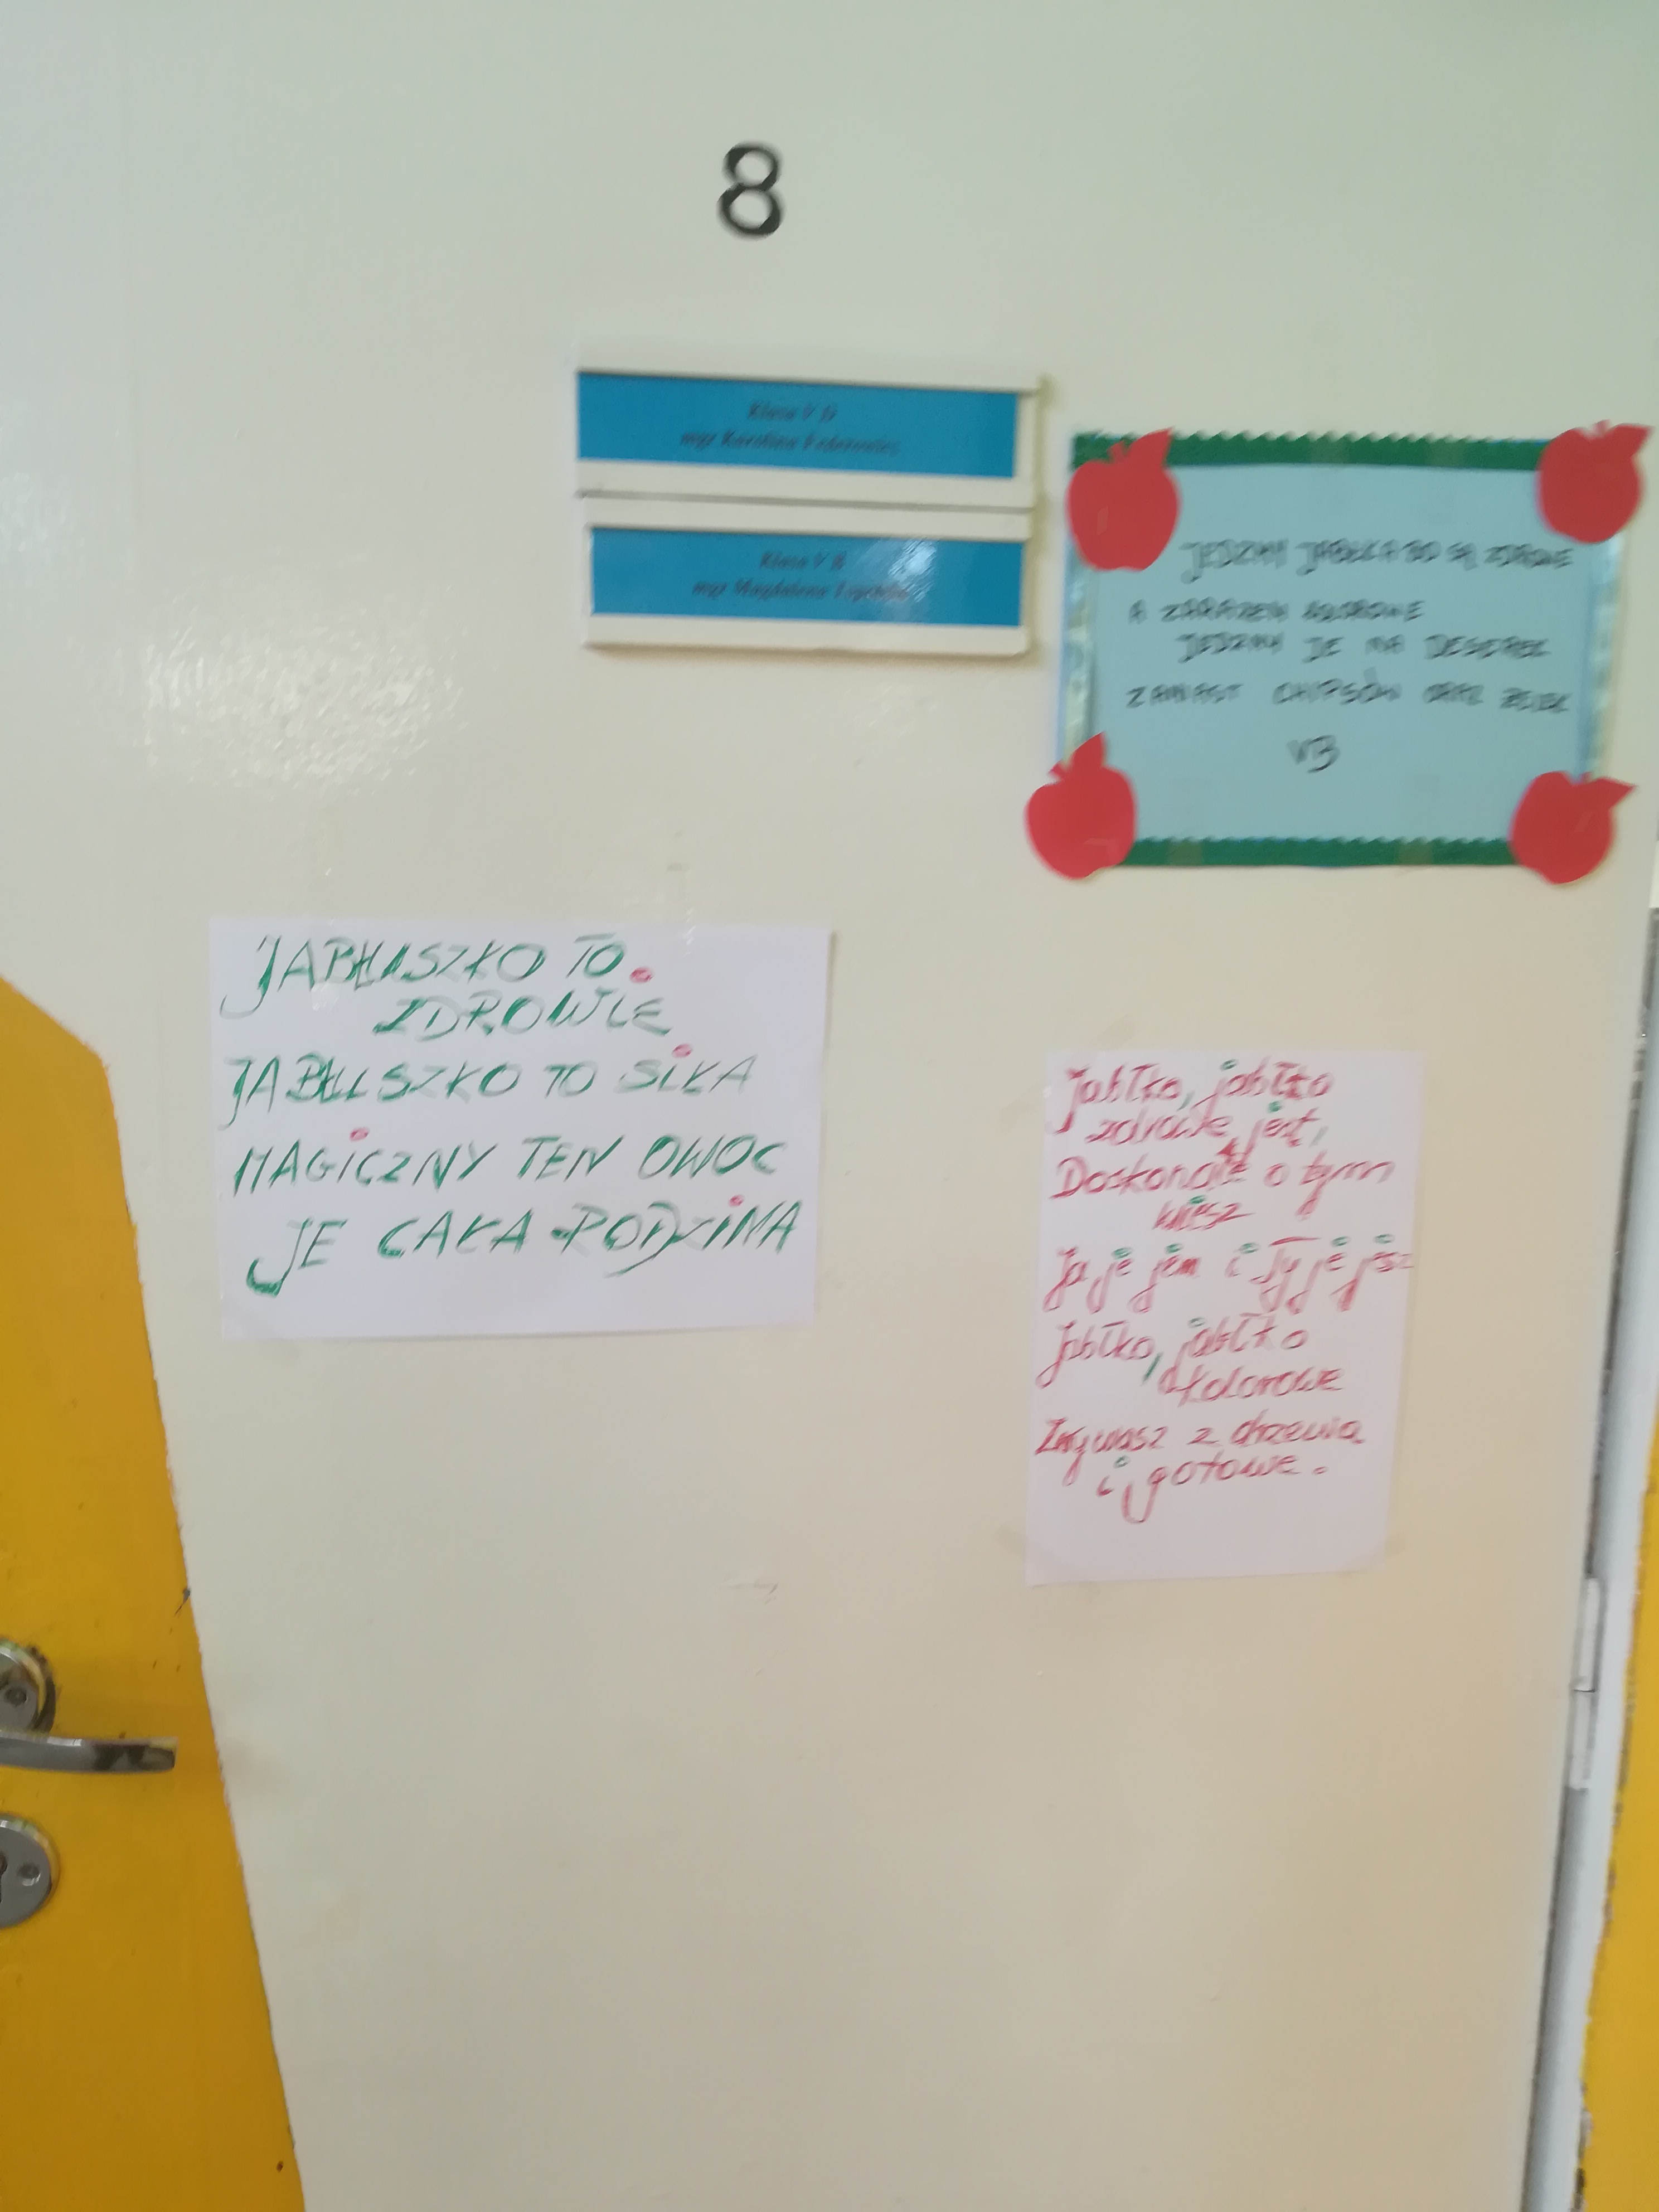 8
Klasa V D
mgr Karolina
Klasa V B
mgr Magdalena
JEDZMY JABŁKA BO SĄ ZDROWE
A ZARAZEM KOLOROWE
JEDZMY JE NA DESEREK
ZAMIAST CHIPSÓW ORAZ ŻELEK
VB
JABŁUSZKO TO
ZDROWIE
JABŁUSZKO TO SIŁA
MAGICZNY TEN OWOC
JE CAŁA RODZINA
Jabłko, jabłko
zdrowe jest,
Doskonale o tym
wiesz
Ja je jem i Ty je jesz
Jabłko, jabłko
kolorowe
Zrywasz z drzewa
i gotowe.